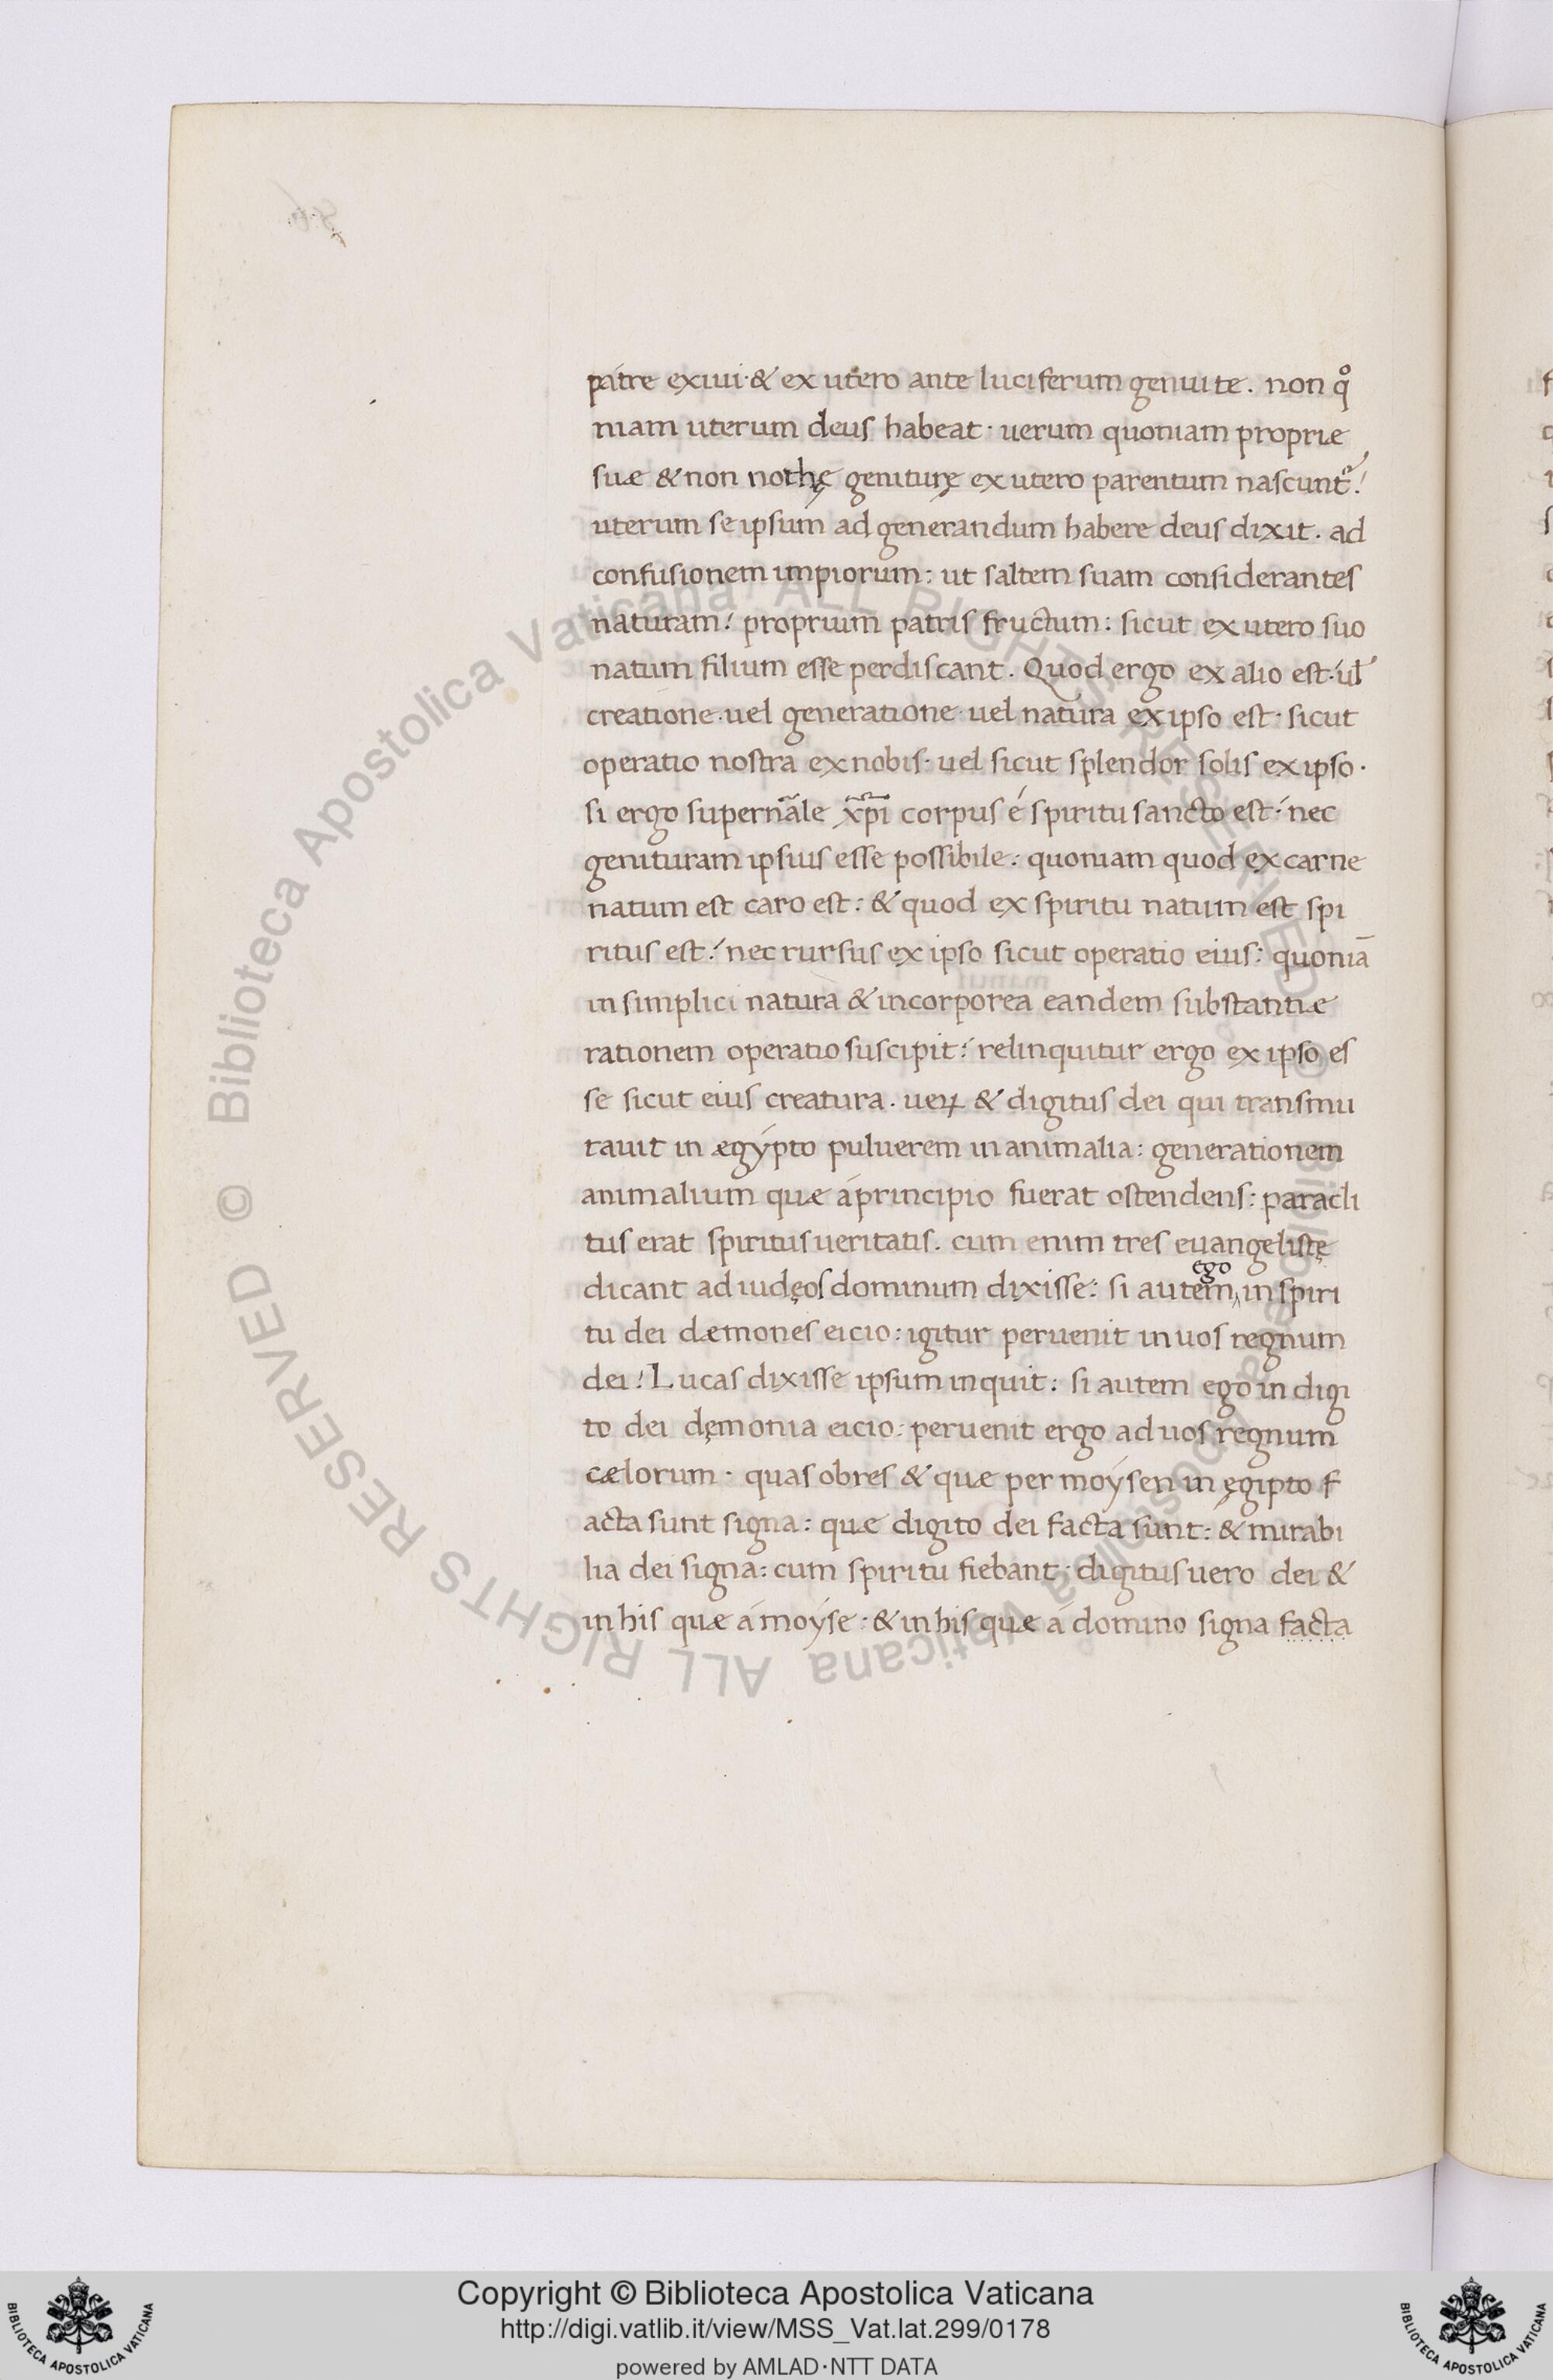 patre exiui·& ex utero ante luciferum genui te. non qͦ
niam uterum deus habeat· uerum quoniam propriæ
suæ & non nothę geniturę ex utero parentum nascunt᷑:
uterum se ipsum ad generandum habere deus dixit. ad
confusionem impiorum: ut saltem suam considerantes
naturam: proprium patris fructum: sicut ex utero suo
natum filium esse perdiscant. Quod ergo ex alio est· ul̄
creatione·uel generatione·uel natura ex ipso est· sicut
operatio nostra ex nobis· uel sicut splendor solis ex ipso·
si ergo supernale xp̄i corpus é spiritu sancto est: nec
genituram ipsius esse possibile: quoniam quod ex carne
natum est caro est: & quod ex spiritu natum est spi
ritus est: nec rursus ex ipso sicut operatio eius: quoniā
in simplici natura & incorporea eandem substantiæ
rationem operatio suscipit: relinquitur ergo ex ipso es
se sicut eius creatura. ueꝝ & digitus dei qui transmu
tauit in ægýpto puluerem in animalia: generationem
animalium quæ á principio fuerat ostendens: paracli
tus erat spiritus ueritatis. cum enim tres euangelistę
ego
dicant ad iudęos dominum dixisse: si autem in spiri
tu dei dæmones eicio: igitur peruenit in uos regnum
dei: Lucas dixisse ipsum inquit: si autem ego in digi
to dei dęmonia eicio: peruenit ergo ad uos regnum
cælorum· quas obres & quæ per moýsen in ęgipto f
acta sunt signa: quæ digito dei facta sunt: & mirabi
lia dei signa: cum spiritu fiebant· digitus uero dei &
in his quæ á moýse: & in his quæ á domino signa facta
© Biblioteca Apostolica Vaticana ALL RIGHTS RESERVED
© Biblioteca Apostolica Vaticana ALL RIGHTS RESERVED
Copyright © Biblioteca Apostolica Vaticana
http://digi.vatlib.it/view/MSS_Vat.lat.299/0178
powered by AMLAD·NTT DATA
BIBLIOTECA APOSTOLICA VATICANA
BIBLIOTECA APOSTOLICA VATICANA